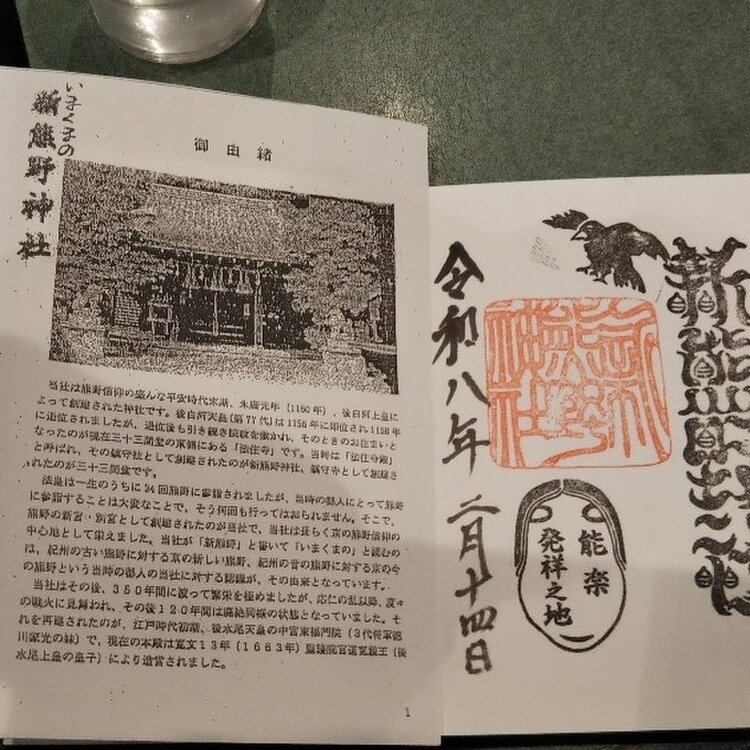 いまくまの
新熊野神社
御由緒
当社は熊野信仰の盛んな平安時代末期、永暦元年（1160年）、後白河上皇に
よって創建された神社です。後白河天皇（第77代）は1155年に即位され1158年
に退位されましたが、退位後も引き続き院政を敷かれ、そのときのお住まいと
なったのが現在三十三間堂の東側にある「法住寺」です。当時は「法住寺殿」
と呼ばれ、その鎮守社として創建されたのが新熊野神社、鎮守寺として創建さ
れたのが三十三間堂です。
法皇は一生のうちに34回熊野に参詣されましたが、当時の都人にとって熊野
に参詣することは大変なことで、そう何回も行ってはおられません。そこで、
熊野の新宮・別宮として創建されたのが当社で、当社は長らく京の熊野信仰の
中心地として栄えました。当社が「新熊野」と書いて「いまくまの」と読むの
は、紀州の古い熊野に対する京の新しい熊野、紀州の昔の熊野に対する京の今
の熊野という当時の都人の当社に対する認識が、その由来となっています。
当社はその後、350年間に渡って繁栄を極めましたが、応仁の乱以降、度々
の戦火に見舞われ、その後120年間は廃絶同様の状態となっていました。そ
れを再建されたのが、江戸時代初期、後水尾天皇の中宮東福門院（3代将軍徳
川家光の妹）で、現在の本殿は寛文13年（1663年）聖護院宮道寛親王（後
水尾上皇の皇子）により造営されました。
1
新熊野
令和八年
二月十四日
能楽
発祥之地